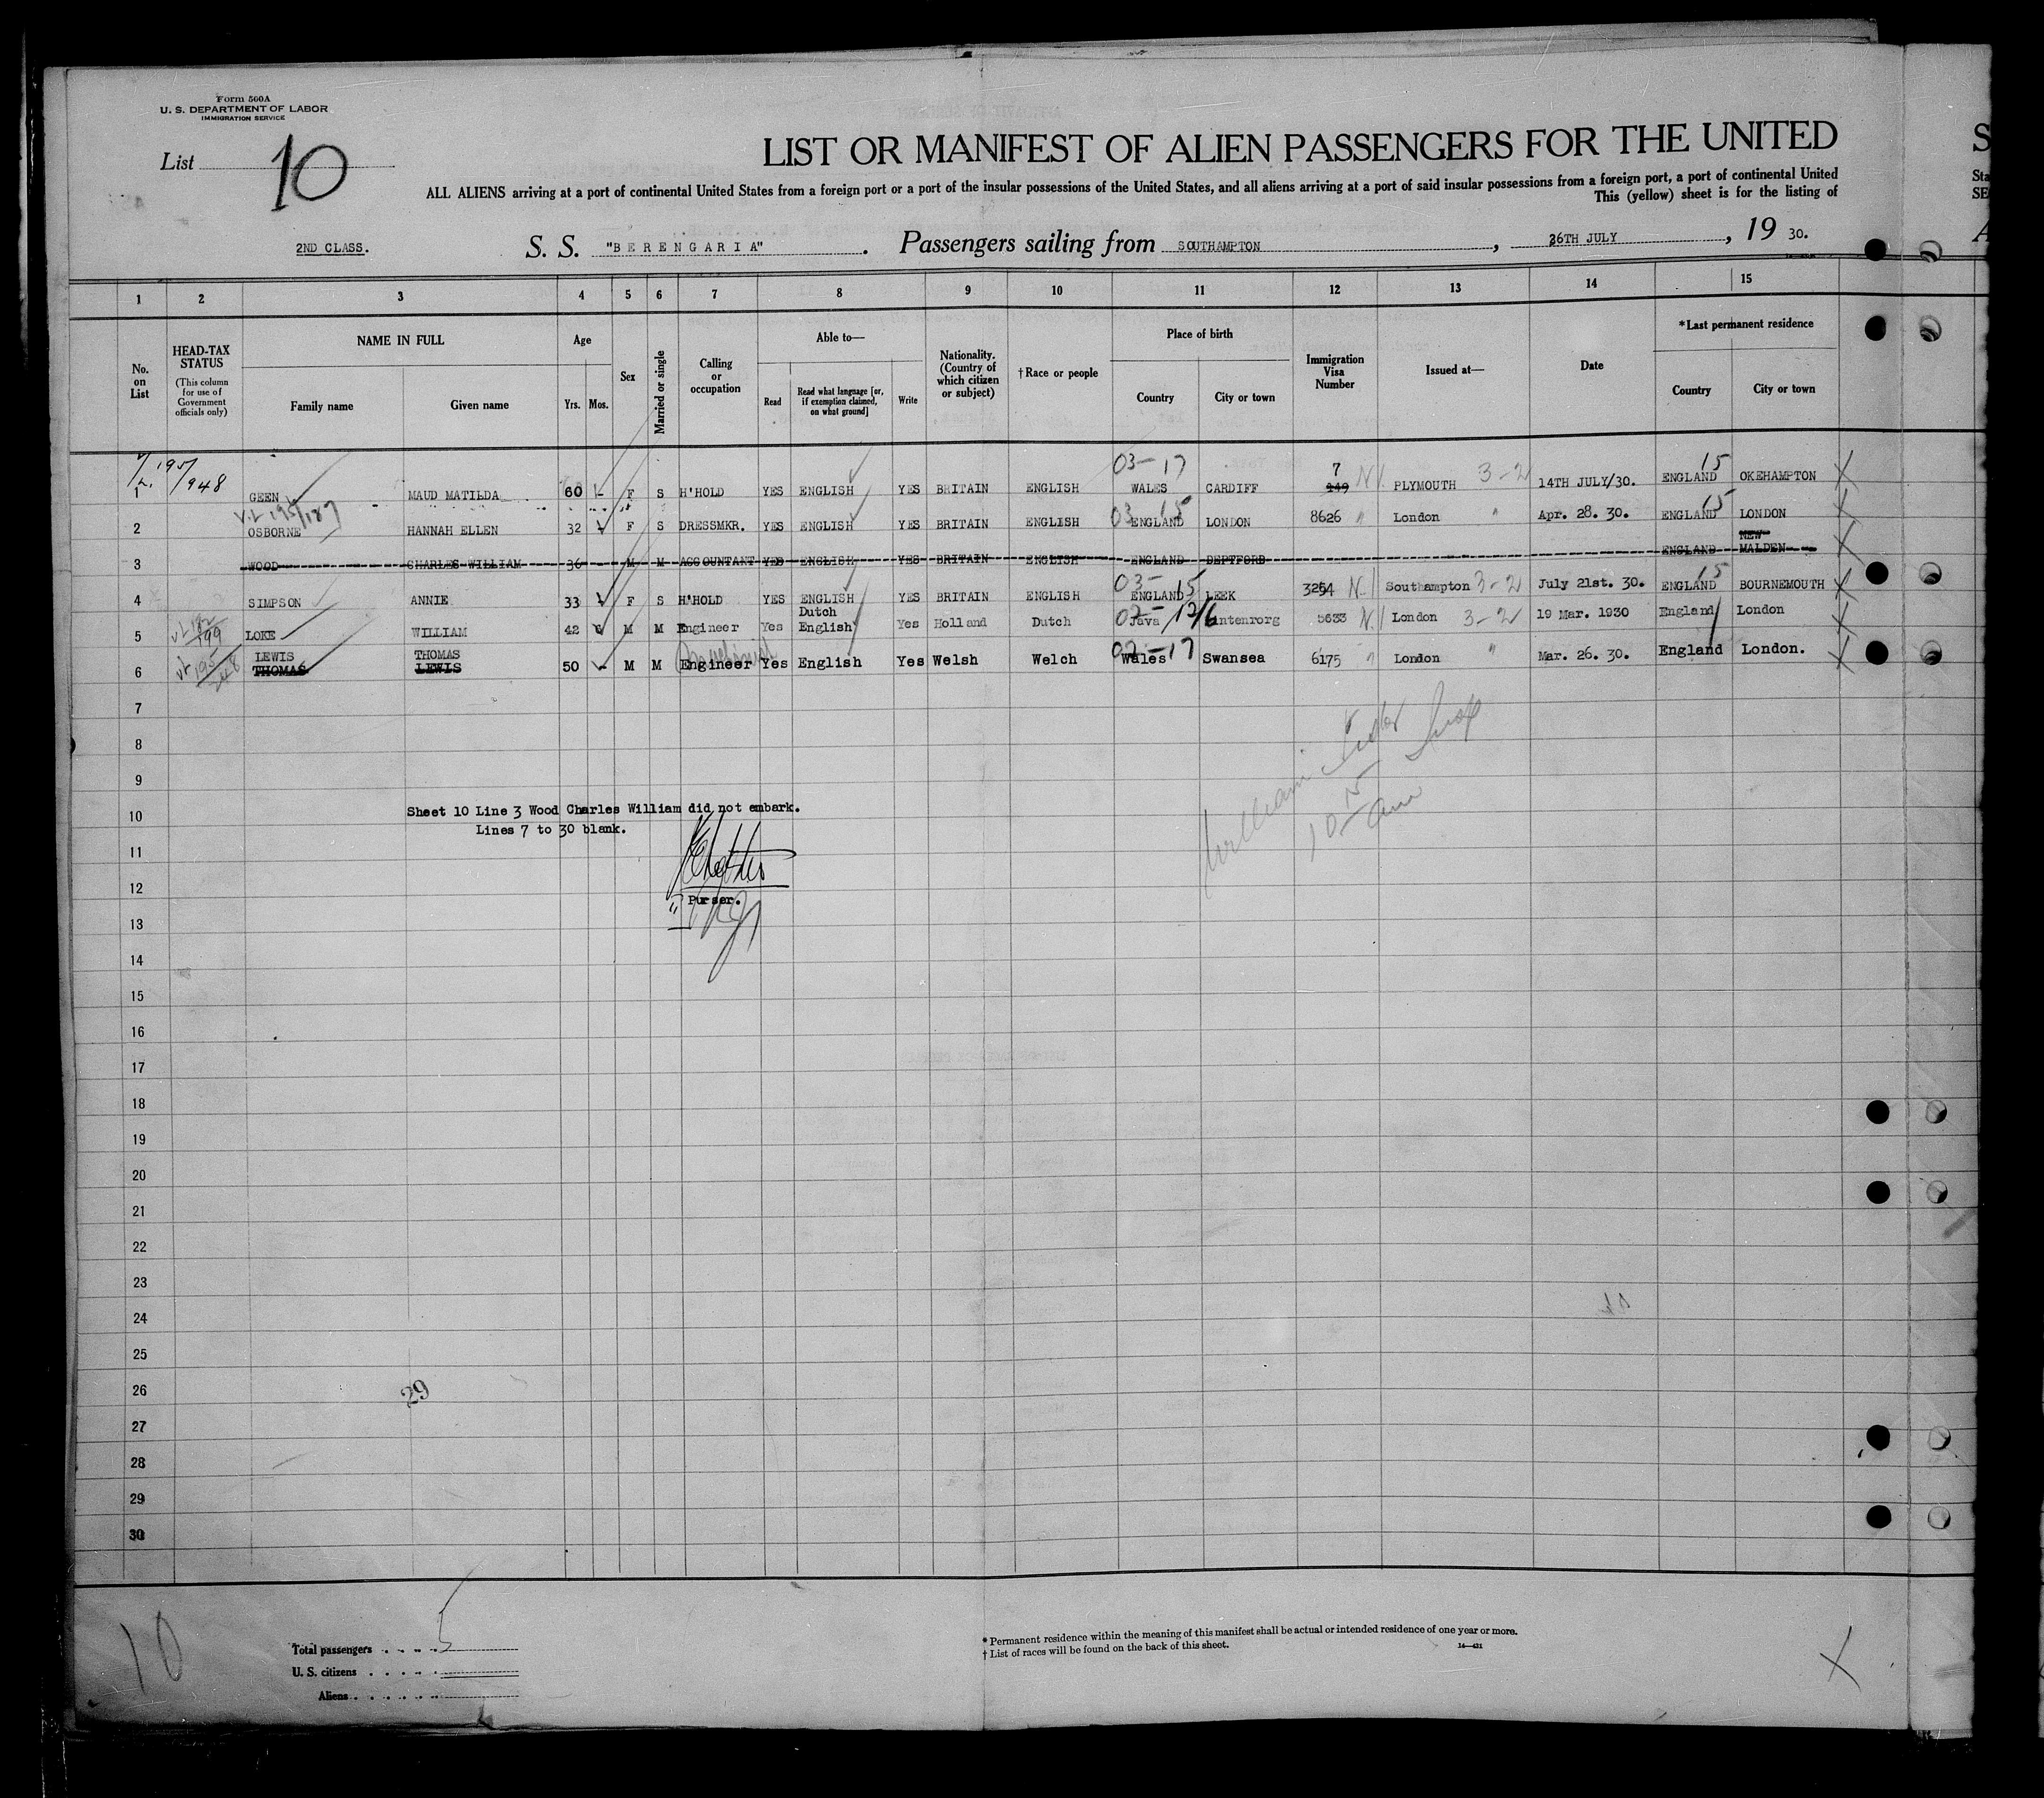 Form 500A
U. S. DEPARTMENT OF LABOR
IMMIGRATION SERVICE
List 10
LIST OR MANIFEST OF ALIEN PASSENGERS FOR THE UNITED
ALL ALIENS arriving at a port of continental United States from a foreign port or a port of the insular possessions of the United States, and all aliens arriving at a port of said insular possessions from a foreign port, a port of continental United
This (yellow) sheet is for the listing of
2ND CLASS. S. S. "BERENGARIA". Passengers sailing from SOUTHAMPTON, 26TH JULY, 19 30.
1 2 3 4 5 6 7 8 9 10 11 12 13 14 15
No. on List
HEAD-TAX STATUS
(This column for use of Government officials only)
NAME IN FULL
Family name Given name
Age
Yrs. Mos.
Sex
Married or single
Calling or occupation
Able to—
Read Read what language [or, if exemption claimed, on what ground] Write
Nationality. (Country of which citizen or subject)
† Race or people
Place of birth
Country City or town
Immigration Visa Number
Issued at—
Date
*Last permanent residence
Country City or town
195/948 03-17 7 15
1 GEEN MAUD MATILDA 60 - F S H'HOLD YES ENGLISH YES BRITAIN ENGLISH WALES CARDIFF 249 N. PLYMOUTH 3-2 14TH JULY/30. ENGLAND OKEHAMPTON X
V.L 195/187 03 15 15
2 OSBORNE HANNAH ELLEN 32 F S DRESSMKR. YES ENGLISH YES BRITAIN ENGLISH ENGLAND LONDON 8626 " London " Apr. 28. 30. ENGLAND LONDON X
3 WOOD CHARLES WILLIAM 36 - M M ACCOUNTANT YES ENGLISH YES BRITAIN ENGLISH ENGLAND DEPTFORD ENGLAND NEW MALDEN X
03- 15 15
4 SIMPSON ANNIE 33 F S H'HOLD YES ENGLISH YES BRITAIN ENGLISH ENGLAND LEEK 3254 N. Southampton 3-2 July 21st. 30. ENGLAND BOURNEMOUTH X
5 LOKE WILLIAM 42 M M Engineer Yes Dutch English Yes Holland Dutch Java 5633 N. London 3-2 19 Mar. 1930 England London X
LEWIS THOMAS
6 THOMAS LEWIS 50 - M M Engineer Yes English Yes Welsh Welch Wales Swansea 6175 " London " Mar. 26. 30. England London. X
7
8
9
10
Sheet 10 Line 3 Wood Charles William did not embark.
Lines 7 to 30 blank.
11
12
Purser.
13
14
15
16
17
18
19
20
21
22
23
24
25
26
29
27
28
29
30
10
Total passengers 5
U. S. citizens
Aliens
* Permanent residence within the meaning of this manifest shall be actual or intended residence of one year or more.
† List of races will be found on the back of this sheet. 14—421
X